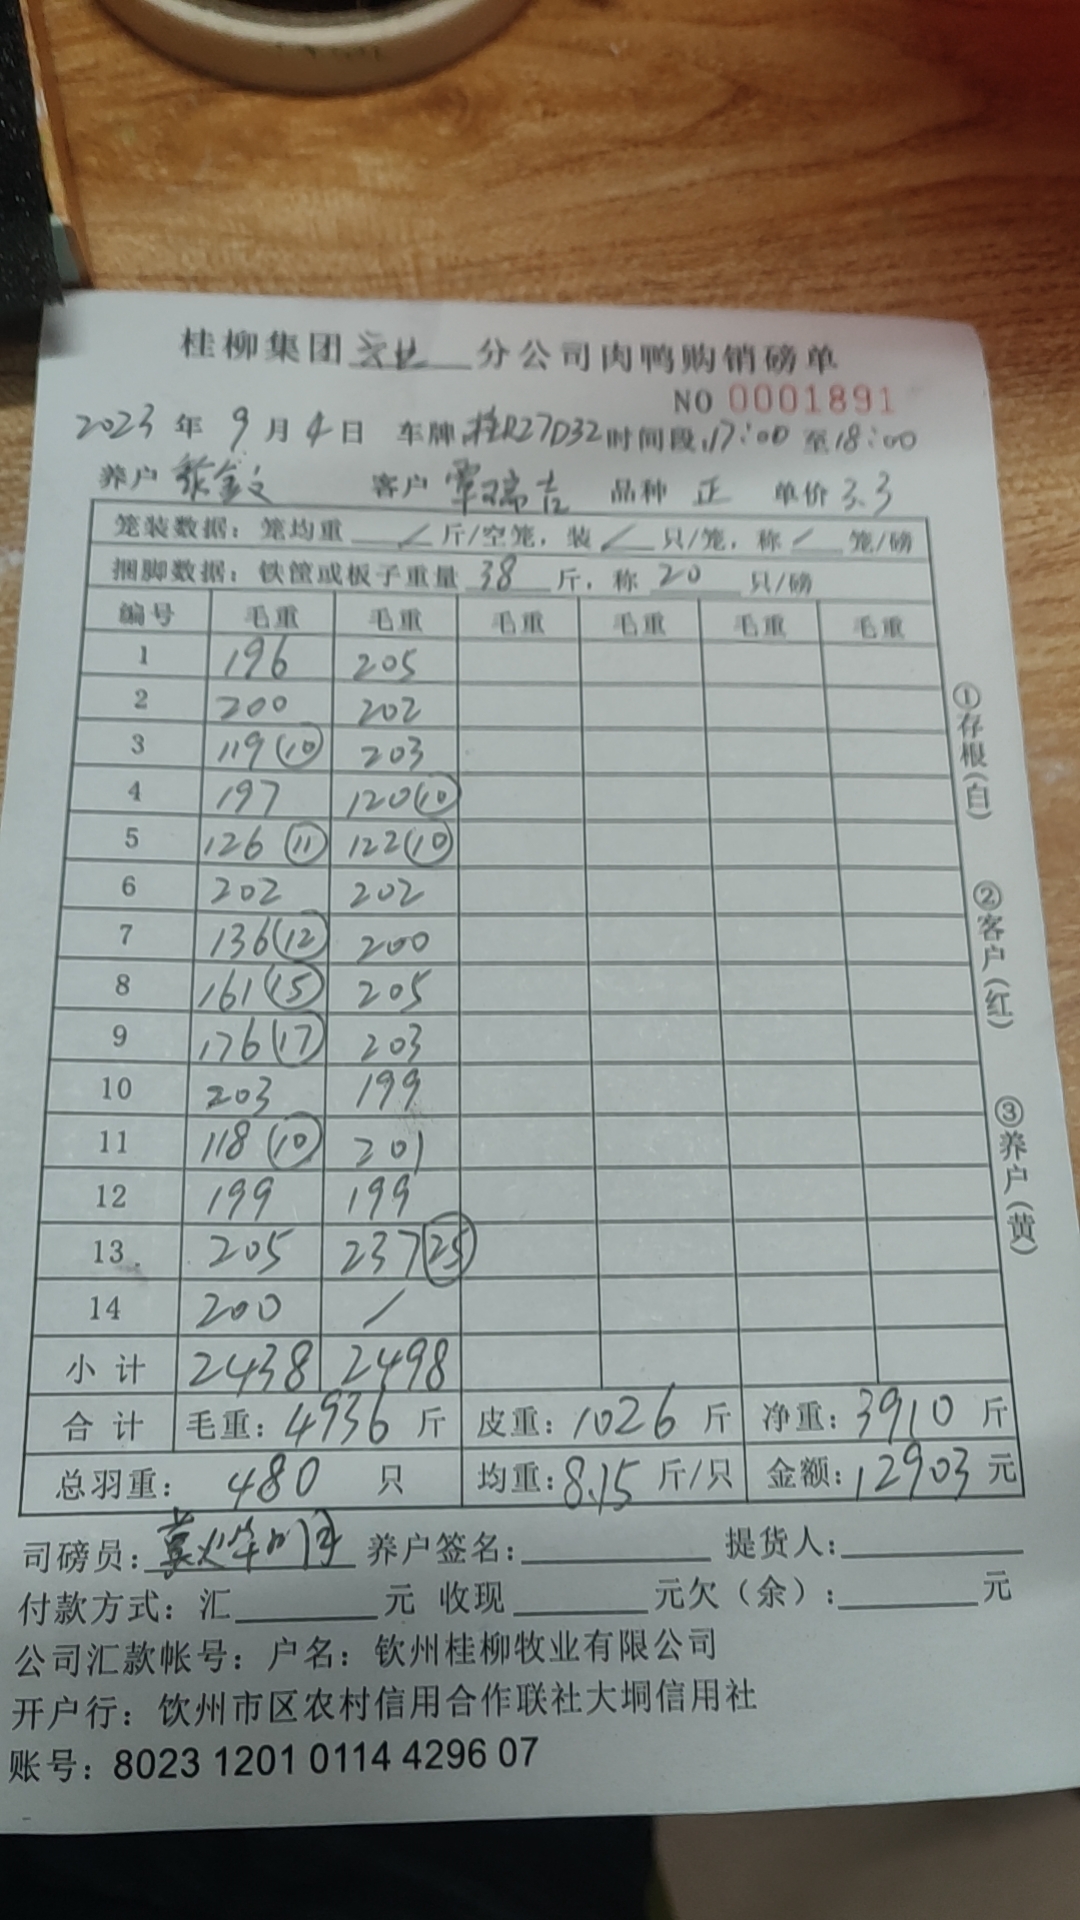 桂柳集团 分公司肉鸭购销磅单
NO 0001891
2023 年 9 月 4 日 车牌 桂R27D32 时间段 17:00 至 18:00
养户 客户 覃瑞吉 品种 正 单价 3.3
笼装数据：笼均重 / 斤/空笼，装 / 只/笼，称 / 笼/磅
捆脚数据：铁筐或板子重量 38 斤，称 20 只/磅
编号 毛重 毛重 毛重 毛重 毛重 毛重
1 196 205
2 200 202
3 119 (10) 203
4 197 120 (10)
5 126 (11) 122 (10)
6 202 202
7 136 (12) 200
8 161 (15) 205
9 176 (17) 203
10 203 199
11 118 (10) 201
12 199 199
13 205 237 (25)
14 200 /
小计 2438 2498
合计 毛重：4936 斤 皮重：1026 斤 净重：3910 斤
总羽重：480 只 均重：8.15 斤/只 金额：12903 元
司磅员： 养户签名： 提货人：
付款方式：汇 元 收现 元欠（余）： 元
公司汇款帐号：户名：钦州桂柳牧业有限公司
开户行：饮州市区农村信用合作联社大垌信用社
账号：8023 1201 0114 4296 07
①存根（白）
②客户（红）
③养户（黄）